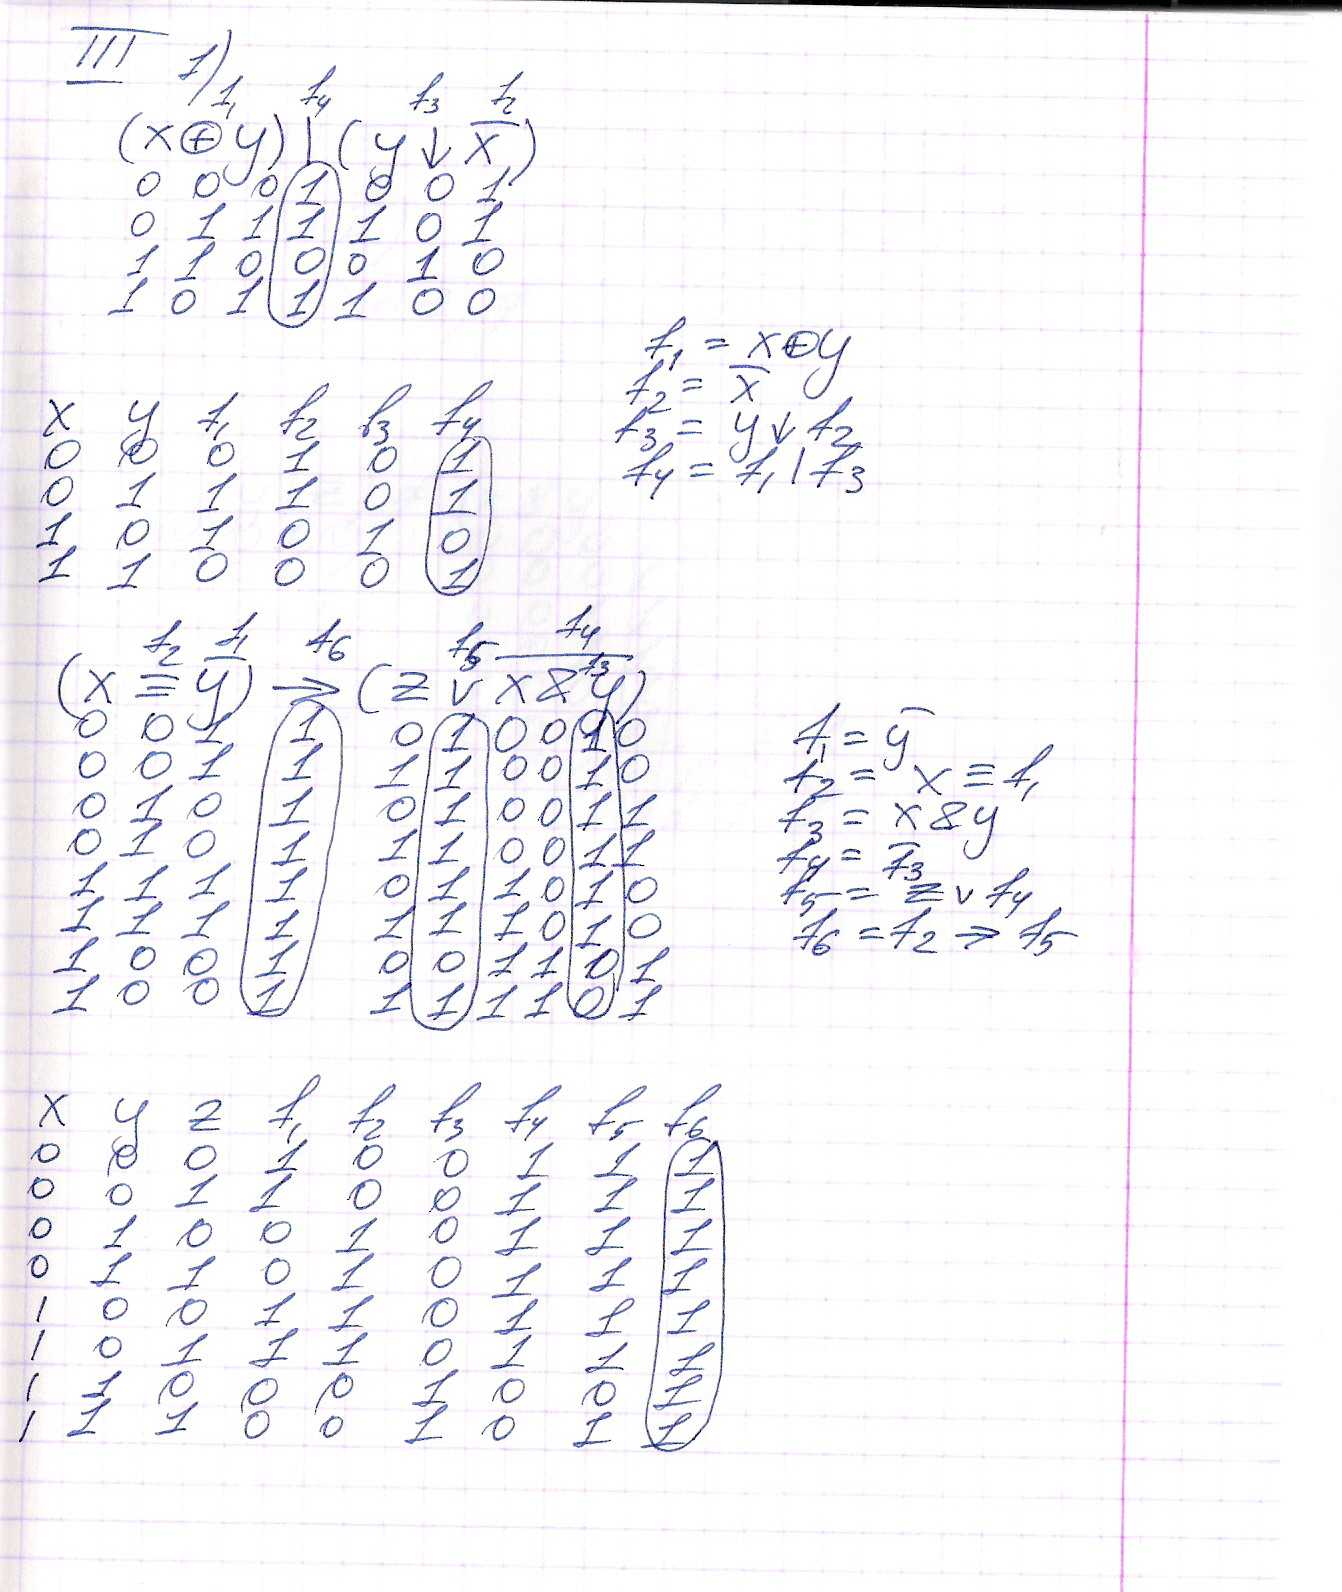 III 1)
f₁ f₄ f₃ f₂
(x ⊕ y) | (y ↓ x̅)
0 0 0 1 0 0 1
0 1 1 1 1 0 1
1 1 0 0 0 1 0
1 0 1 1 1 0 0
f₁ = x⊕y
f₂ = x̅
f₃ = y ↓ f₂
f₄ = f₁ | f₃
x y f₁ f₂ f₃ f₄
0 0 0 1 0 1
0 1 1 1 0 1
1 0 1 0 1 0
1 1 0 0 0 1
f₂ f₁ f₆ f₅ f₄ f₃
(x ≡ y̅) → (z ∨ x̅&̅y̅)
0 0 1 1 0 1 0 0 1 0
0 0 1 1 1 1 0 0 1 0
0 1 0 1 0 1 0 0 1 1
0 1 0 1 1 1 0 0 1 1
1 1 1 1 0 1 1 0 1 0
1 1 1 1 1 1 1 0 1 0
1 0 0 1 0 0 1 1 0 1
1 0 0 1 1 1 1 1 0 1
f₁ = y̅
f₂ = x ≡ f₁
f₃ = x & y
f₄ = f̅₃
f₅ = z ∨ f₄
f₆ = f₂ → f₅
x y z f₁ f₂ f₃ f₄ f₅ f₆
0 0 0 1 0 0 1 1 1
0 0 1 1 0 0 1 1 1
0 1 0 0 1 0 1 1 1
0 1 1 0 1 0 1 1 1
1 0 0 1 1 0 1 1 1
1 0 1 1 1 0 1 1 1
1 1 0 0 0 1 0 0 1
1 1 1 0 0 1 0 1 1